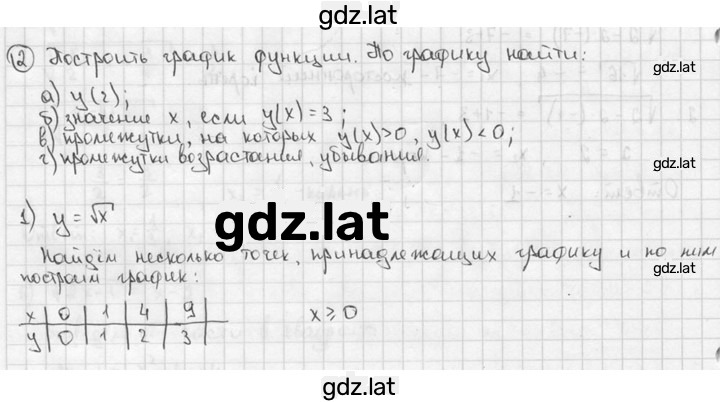 gdz.lat
12 Построить график функции. По графику найти:
gdz.lat
а) y(2);
б) значение x, если y(x)=3;
в) промежутки, на которых y(x)>0, y(x)<0;
г) промежутки возрастания, убывания.
gdz.lat
1) y=√x
gdz.lat
Найдём несколько точек, принадлежащих графику и по ним
построим график:
gdz.lat
x 0 1 4 9 x ≥ 0
y 0 1 2 3
gdz.lat
gdz.lat